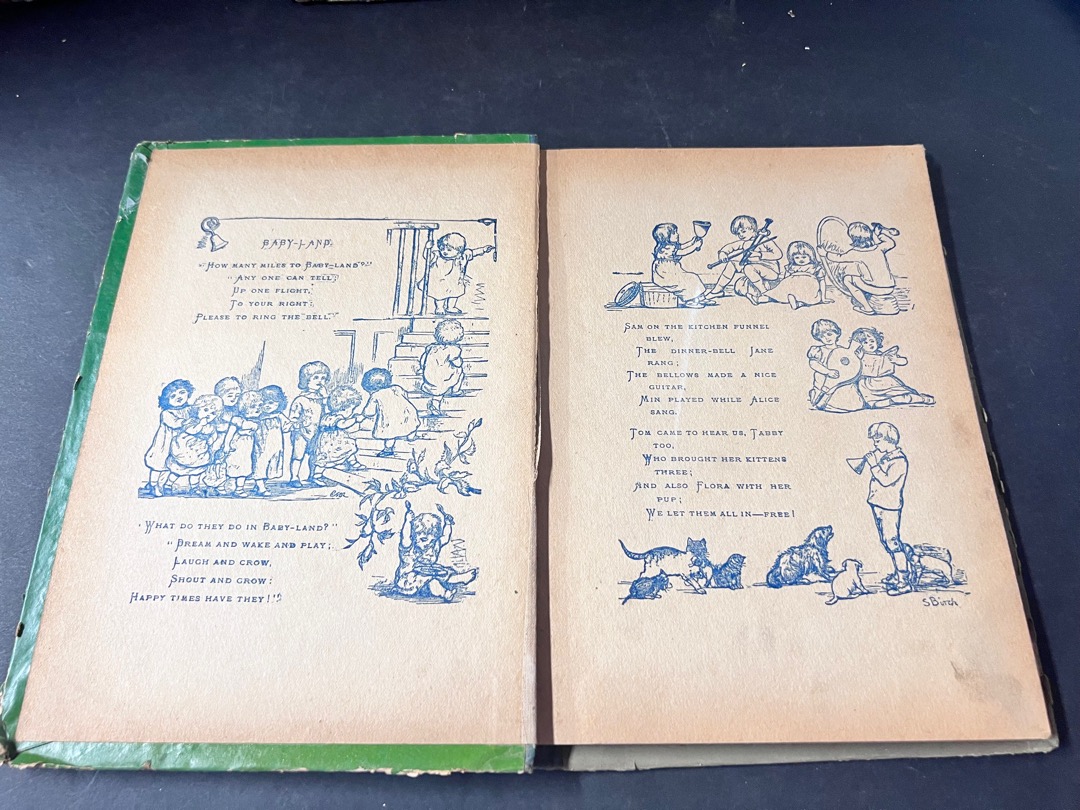 BABY-LAND.
"How many miles to Baby-land?"
"Any one can tell;
Up one flight,
To your right;
Please to ring the bell."
"What do they do in Baby-land?"
"Dream and wake and play;
Laugh and crow,
Shout and grow:
Happy times have they!"
Sam on the kitchen funnel
blew,
The dinner-bell Jane
rang;
The bellows made a nice
guitar,
Min played while Alice
sang.
Tom came to hear us, Tabby
too,
Who brought her kittens
three;
And also Flora with her
pup;
We let them all in—free!
S Birch